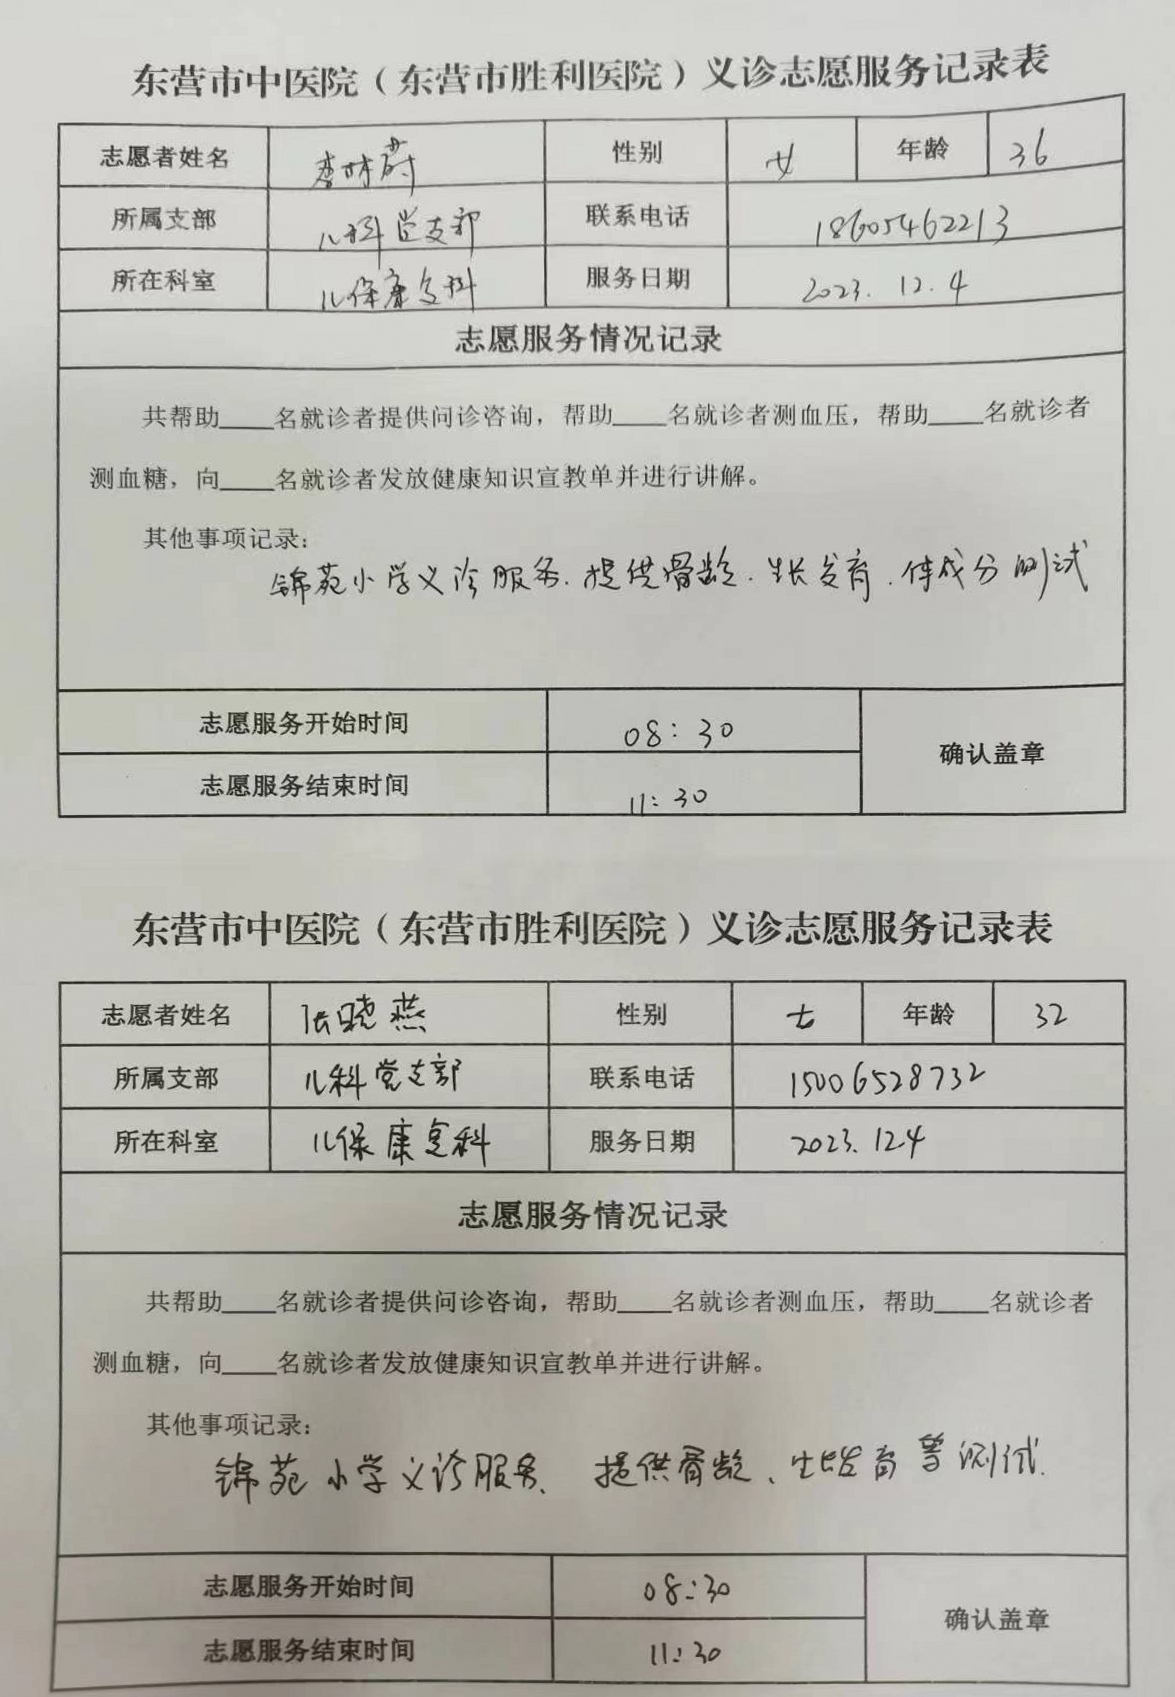 东营市中医院（东营市胜利医院）义诊志愿服务记录表
志愿者姓名 李林蔚 性别 女 年龄 36
所属支部 儿科党支部 联系电话 18605462213
所在科室 儿保康复科 服务日期 2023.12.4
志愿服务情况记录
共帮助____名就诊者提供问诊咨询，帮助____名就诊者测血压，帮助____名就诊者
测血糖，向____名就诊者发放健康知识宣教单并进行讲解。
其他事项记录：
锦苑小学义诊服务.提供骨龄.生长发育.体成分测试
志愿服务开始时间 08:30
确认盖章
志愿服务结束时间 11:30
东营市中医院（东营市胜利医院）义诊志愿服务记录表
志愿者姓名 张晓燕 性别 女 年龄 32
所属支部 儿科党支部 联系电话 15006528732
所在科室 儿保康复科 服务日期 2023.12.4
志愿服务情况记录
共帮助____名就诊者提供问诊咨询，帮助____名就诊者测血压，帮助____名就诊者
测血糖，向____名就诊者发放健康知识宣教单并进行讲解。
其他事项记录：
锦苑小学义诊服务、提供骨龄、生长发育等测试.
志愿服务开始时间 08:30
确认盖章
志愿服务结束时间 11:30